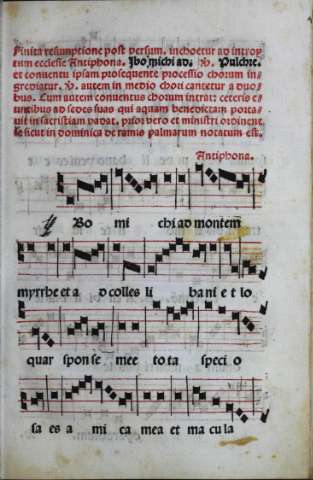 Finita resumptione post versum. inchoetur ad introy-
tum ecclesie Antiphona. Ibo michi ad. ℣. Pulchre.
et conventu ipsam prosequente processio chorum in-
grediatur. ℣. autem in medio chori cantetur a duo-
bus. Cum autem conventus chorum intrat: ceteris e-
untibus ad sedes suas qui aquam benedictam porta-
uit in sacristiam vadat. prior vero et ministri ordinent
se sicut in dominica de ramis palmarum notatum est.
Antiphona.
Ibo mi chi ad montem
myrrhe et a d colles li bani e t lo
quar spon se mee to ta speci o
sa es a mi ca mea et ma cu la